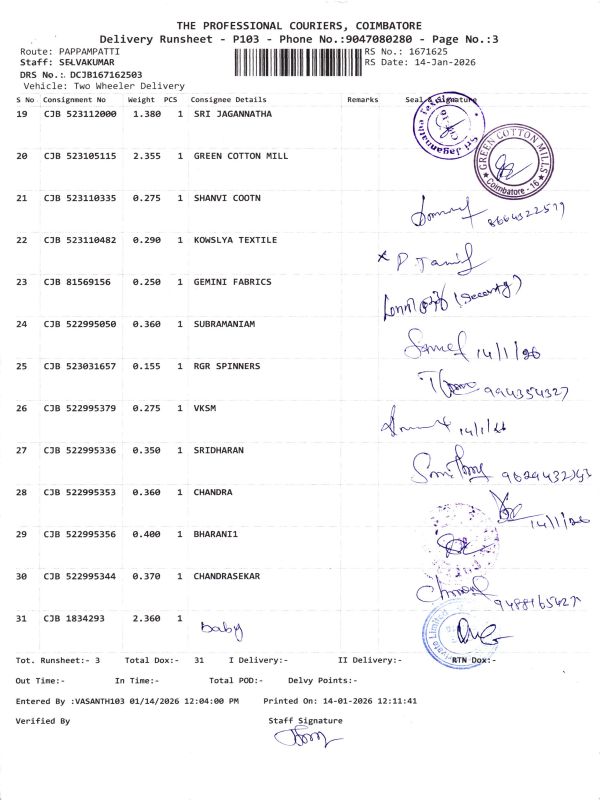 THE PROFESSIONAL COURIERS, COIMBATORE
Delivery Runsheet - P103 - Phone No.:9047080280 - Page No.:3
Route: PAPPAMPATTI RS No.: 1671625
Staff: SELVAKUMAR RS Date: 14-Jan-2026
DRS No.: DCJB167162503
Vehicle: Two Wheeler Delivery
S No Consignment No Weight PCS Consignee Details Remarks Seal & Signature
19 CJB 523112000 1.380 1 SRI JAGANNATHA Sri Jagannatha
20 CJB 523105115 2.355 1 GREEN COTTON MILL GREEN COTTON MILLS Coimbatore - 16
21 CJB 523110335 0.275 1 SHANVI COOTN
22 CJB 523110482 0.290 1 KOWSLYA TEXTILE
23 CJB 81569156 0.250 1 GEMINI FABRICS (Security)
24 CJB 522995050 0.360 1 SUBRAMANIAM 14/1/26
25 CJB 523031657 0.155 1 RGR SPINNERS 994354327
26 CJB 522995379 0.275 1 VKSM 14/1/26
27 CJB 522995336 0.350 1 SRIDHARAN
28 CJB 522995353 0.360 1 CHANDRA 14/1/26
29 CJB 522995356 0.400 1 BHARANI1
30 CJB 522995344 0.370 1 CHANDRASEKAR
31 CJB 1834293 2.360 1 Baby
Tot. Runsheet:- 3 Total Dox:- 31 I Delivery:- II Delivery:- RTN Dox:-
Out Time:- In Time:- Total POD:- Delvy Points:-
Entered By :VASANTH103 01/14/2026 12:04:00 PM Printed On: 14-01-2026 12:11:41
Verified By Staff Signature